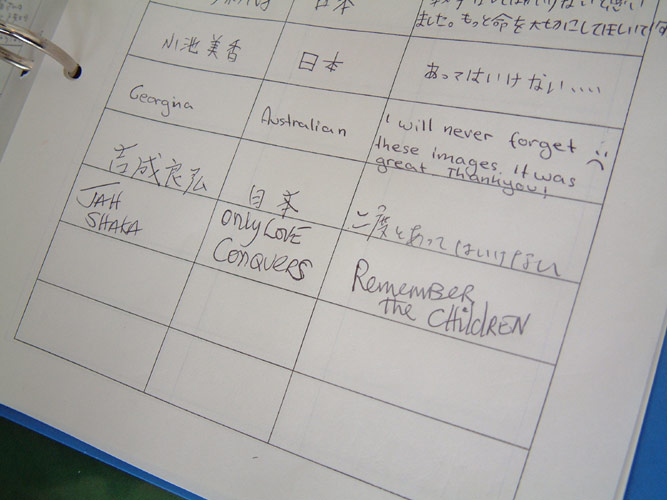 日本
ました。もっと命を大切にしてほしいです
小池美香
日本
あってはいけない....
Georgina
Australian
I will never forget
these images. It was
great Thankyou!
吉成良弘
日本
二度とあってはいけない
JAH
SHAKA
only LOVE
Conquers
Remember
the CHILDREN